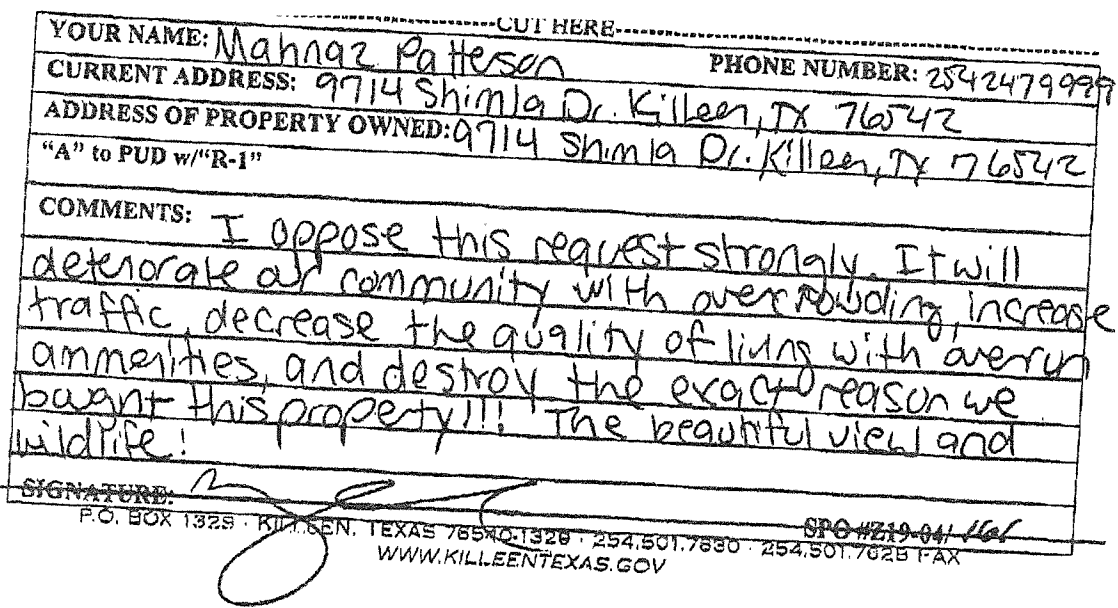 CUT HERE
YOUR NAME: Mahnaz Patterson PHONE NUMBER: 2542479999
CURRENT ADDRESS: 9714 Shimla Dr. Killeen, TX 76542
ADDRESS OF PROPERTY OWNED: 9714 Shimla Dr. Killeen, TX 76542
"A" to PUD w/"R-1"
COMMENTS: I oppose this request strongly. It will
deteriorate our community with overcrowding, increase
traffic, decrease the quality of living with overrun
ammenities, and destroy the exact reason we
bought this property!!! The beautiful view and
wildlife!
SIGNATURE: SPO #Z19-04/ 161
P.O. BOX 1329 · KILLEEN, TEXAS 76540-1329 · 254.501.7630 · 254.501.7628 FAX
WWW.KILLEENTEXAS.GOV